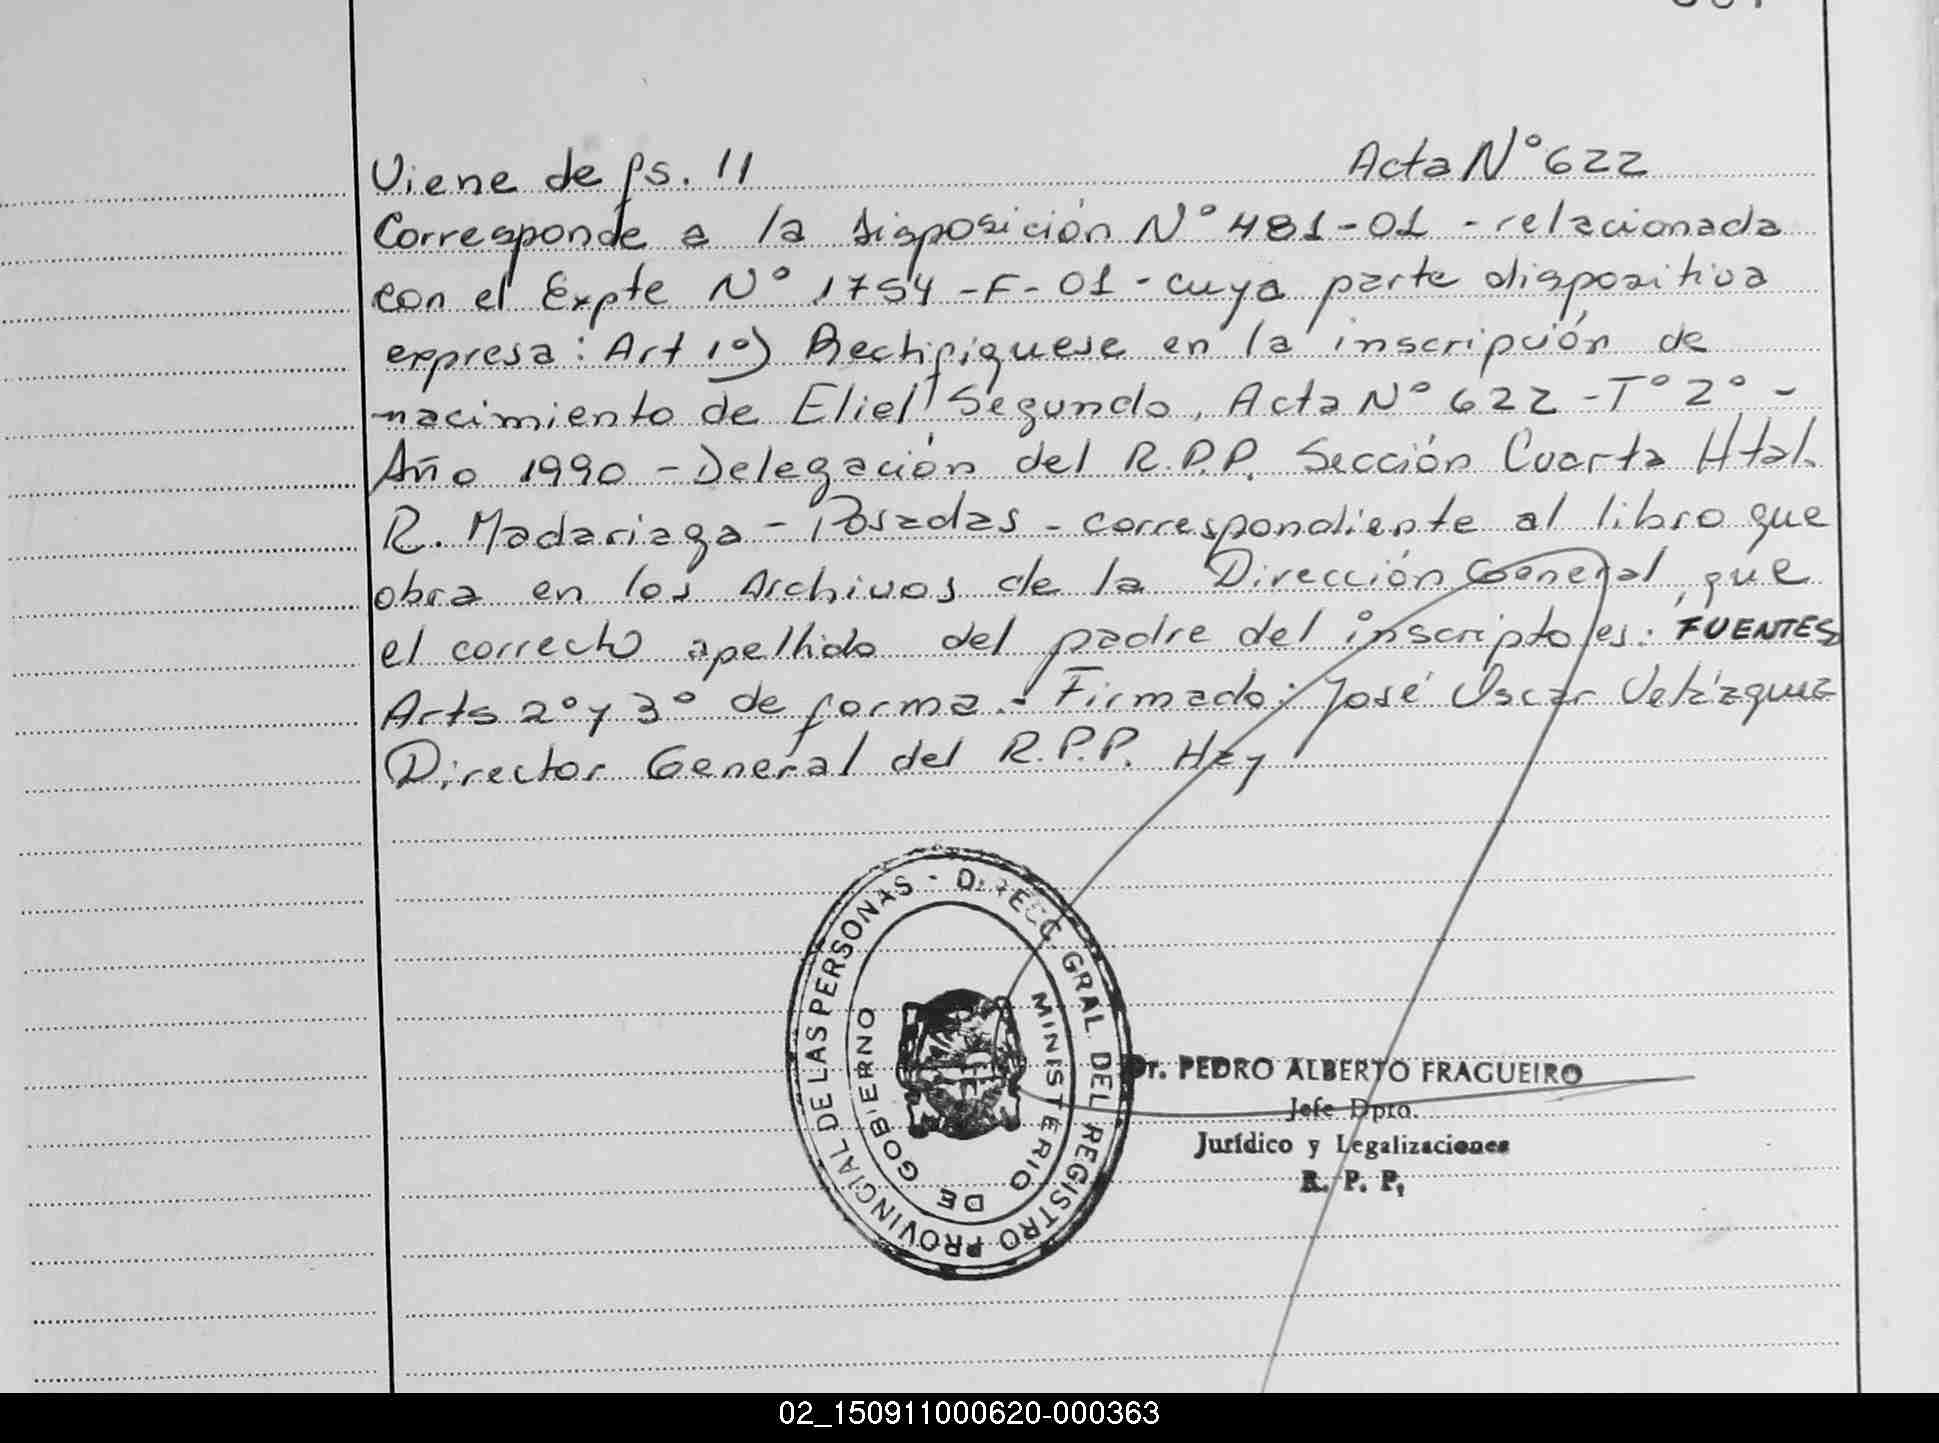 Viene de fs. 11 Acta N° 622
Corresponde a la disposición N° 481-01 - relacionada
con el Expte N° 1754-F-01 - cuya parte dispositiva
expresa: Art 1°) Rectifiquese en la inscripción de
nacimiento de Eliel Segundo, Acta N° 622 - T° 2° -
Año 1990 - Delegación del R.P.P. Sección Cuarta Htal.
R. Madariaga - Posadas - correspondiente al libro que
obra en los Archivos de la Dirección General, que
el correcto apellido del padre del inscripto es: FUENTES
Arts 2° y 3° de forma.- Firmado: José Oscar Velázquez
Director General del R.P.P. Hay
DIRECC. GRAL. DEL REGISTRO PROVINCIAL DE LAS PERSONAS -
MINISTERIO DE GOBIERNO
Dr. PEDRO ALBERTO FRAGUEIRO
Jefe Dpto.
Jurídico y Legalizaciones
R. P. P.
02_150911000620-000363